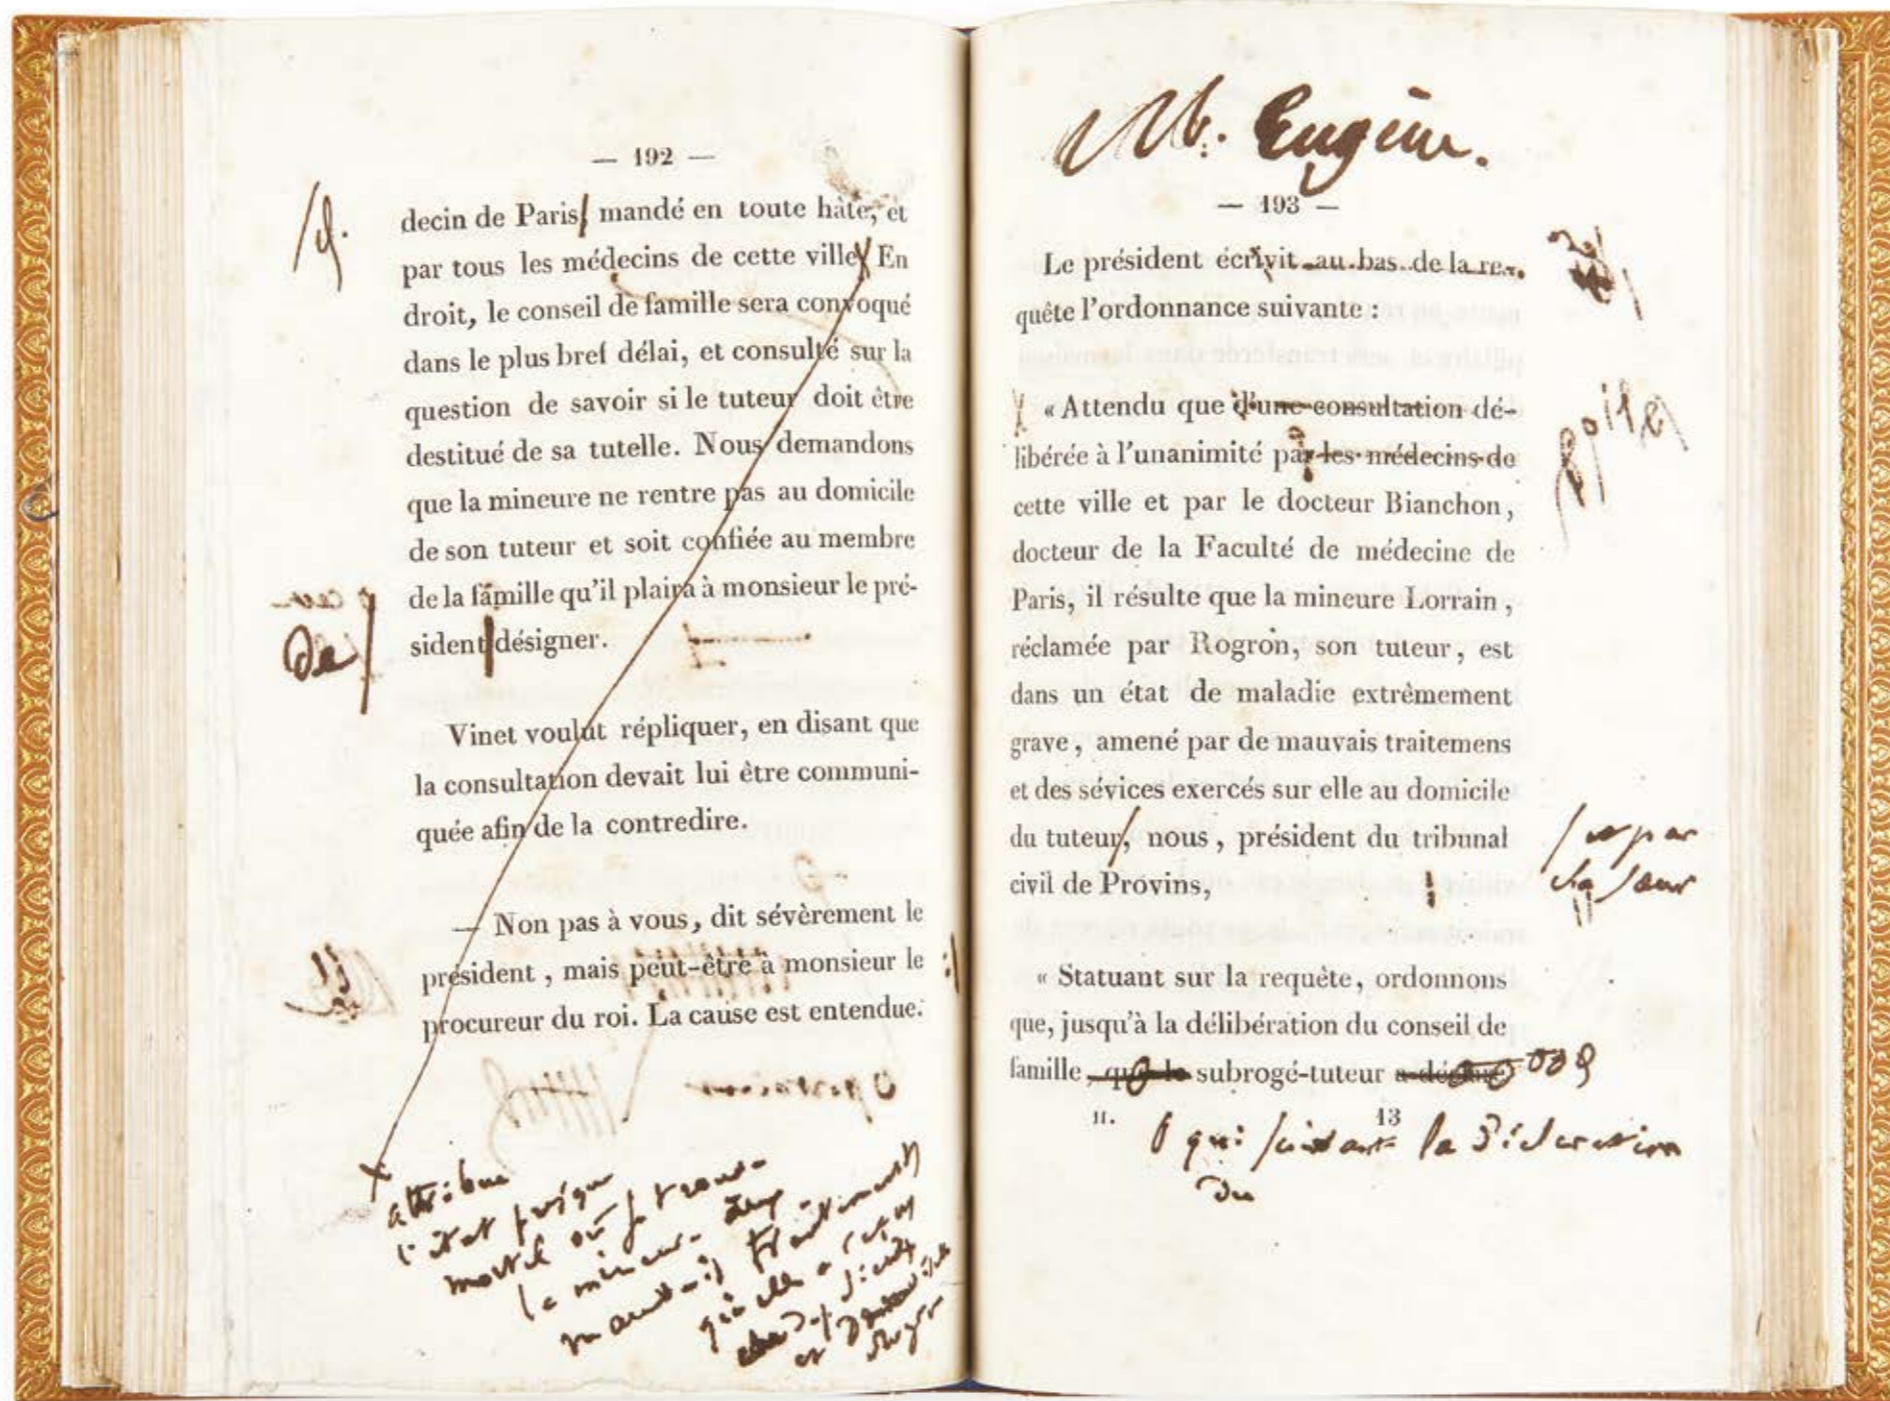 — 192 —
decin de Paris, mandé en toute hâte, et
par tous les médecins de cette ville. En
droit, le conseil de famille sera convoqué
dans le plus bref délai, et consulté sur la
question de savoir si le tuteur doit être
destitué de sa tutelle. Nous demandons
que la mineure ne rentre pas au domicile
de son tuteur et soit confiée au membre
de la famille qu'il plaira à monsieur le pré-
de
sident désigner.
Vinet voulut répliquer, en disant que
la consultation devait lui être communi-
quée afin de la contredire.
— Non pas à vous, dit sévèrement le
président, mais peut-être à monsieur le
procureur du roi. La cause est entendue.
attribue
l'état presque
mortel où se trouve
la mineure aux
mauvais traitements
qu'elle a reçus
M. Eugène.
— 193 —
Le président écrivit au bas de la re-
quête l'ordonnance suivante :
« Attendu que d'une consultation dé-
libérée à l'unanimité par les médecins de
cette ville et par le docteur Bianchon,
docteur de la Faculté de médecine de
Paris, il résulte que la mineure Lorrain,
réclamée par Rogron, son tuteur, est
dans un état de maladie extrêmement
grave, amené par de mauvais traitemens
et des sévices exercés sur elle au domicile
du tuteur, nous, président du tribunal
et par
civil de Provins,
sa sœur
« Statuant sur la requête, ordonnons
que, jusqu'à la délibération du conseil de
famille, que le subrogé-tuteur a déclaré
II. 13
qui suivant la déclaration
du